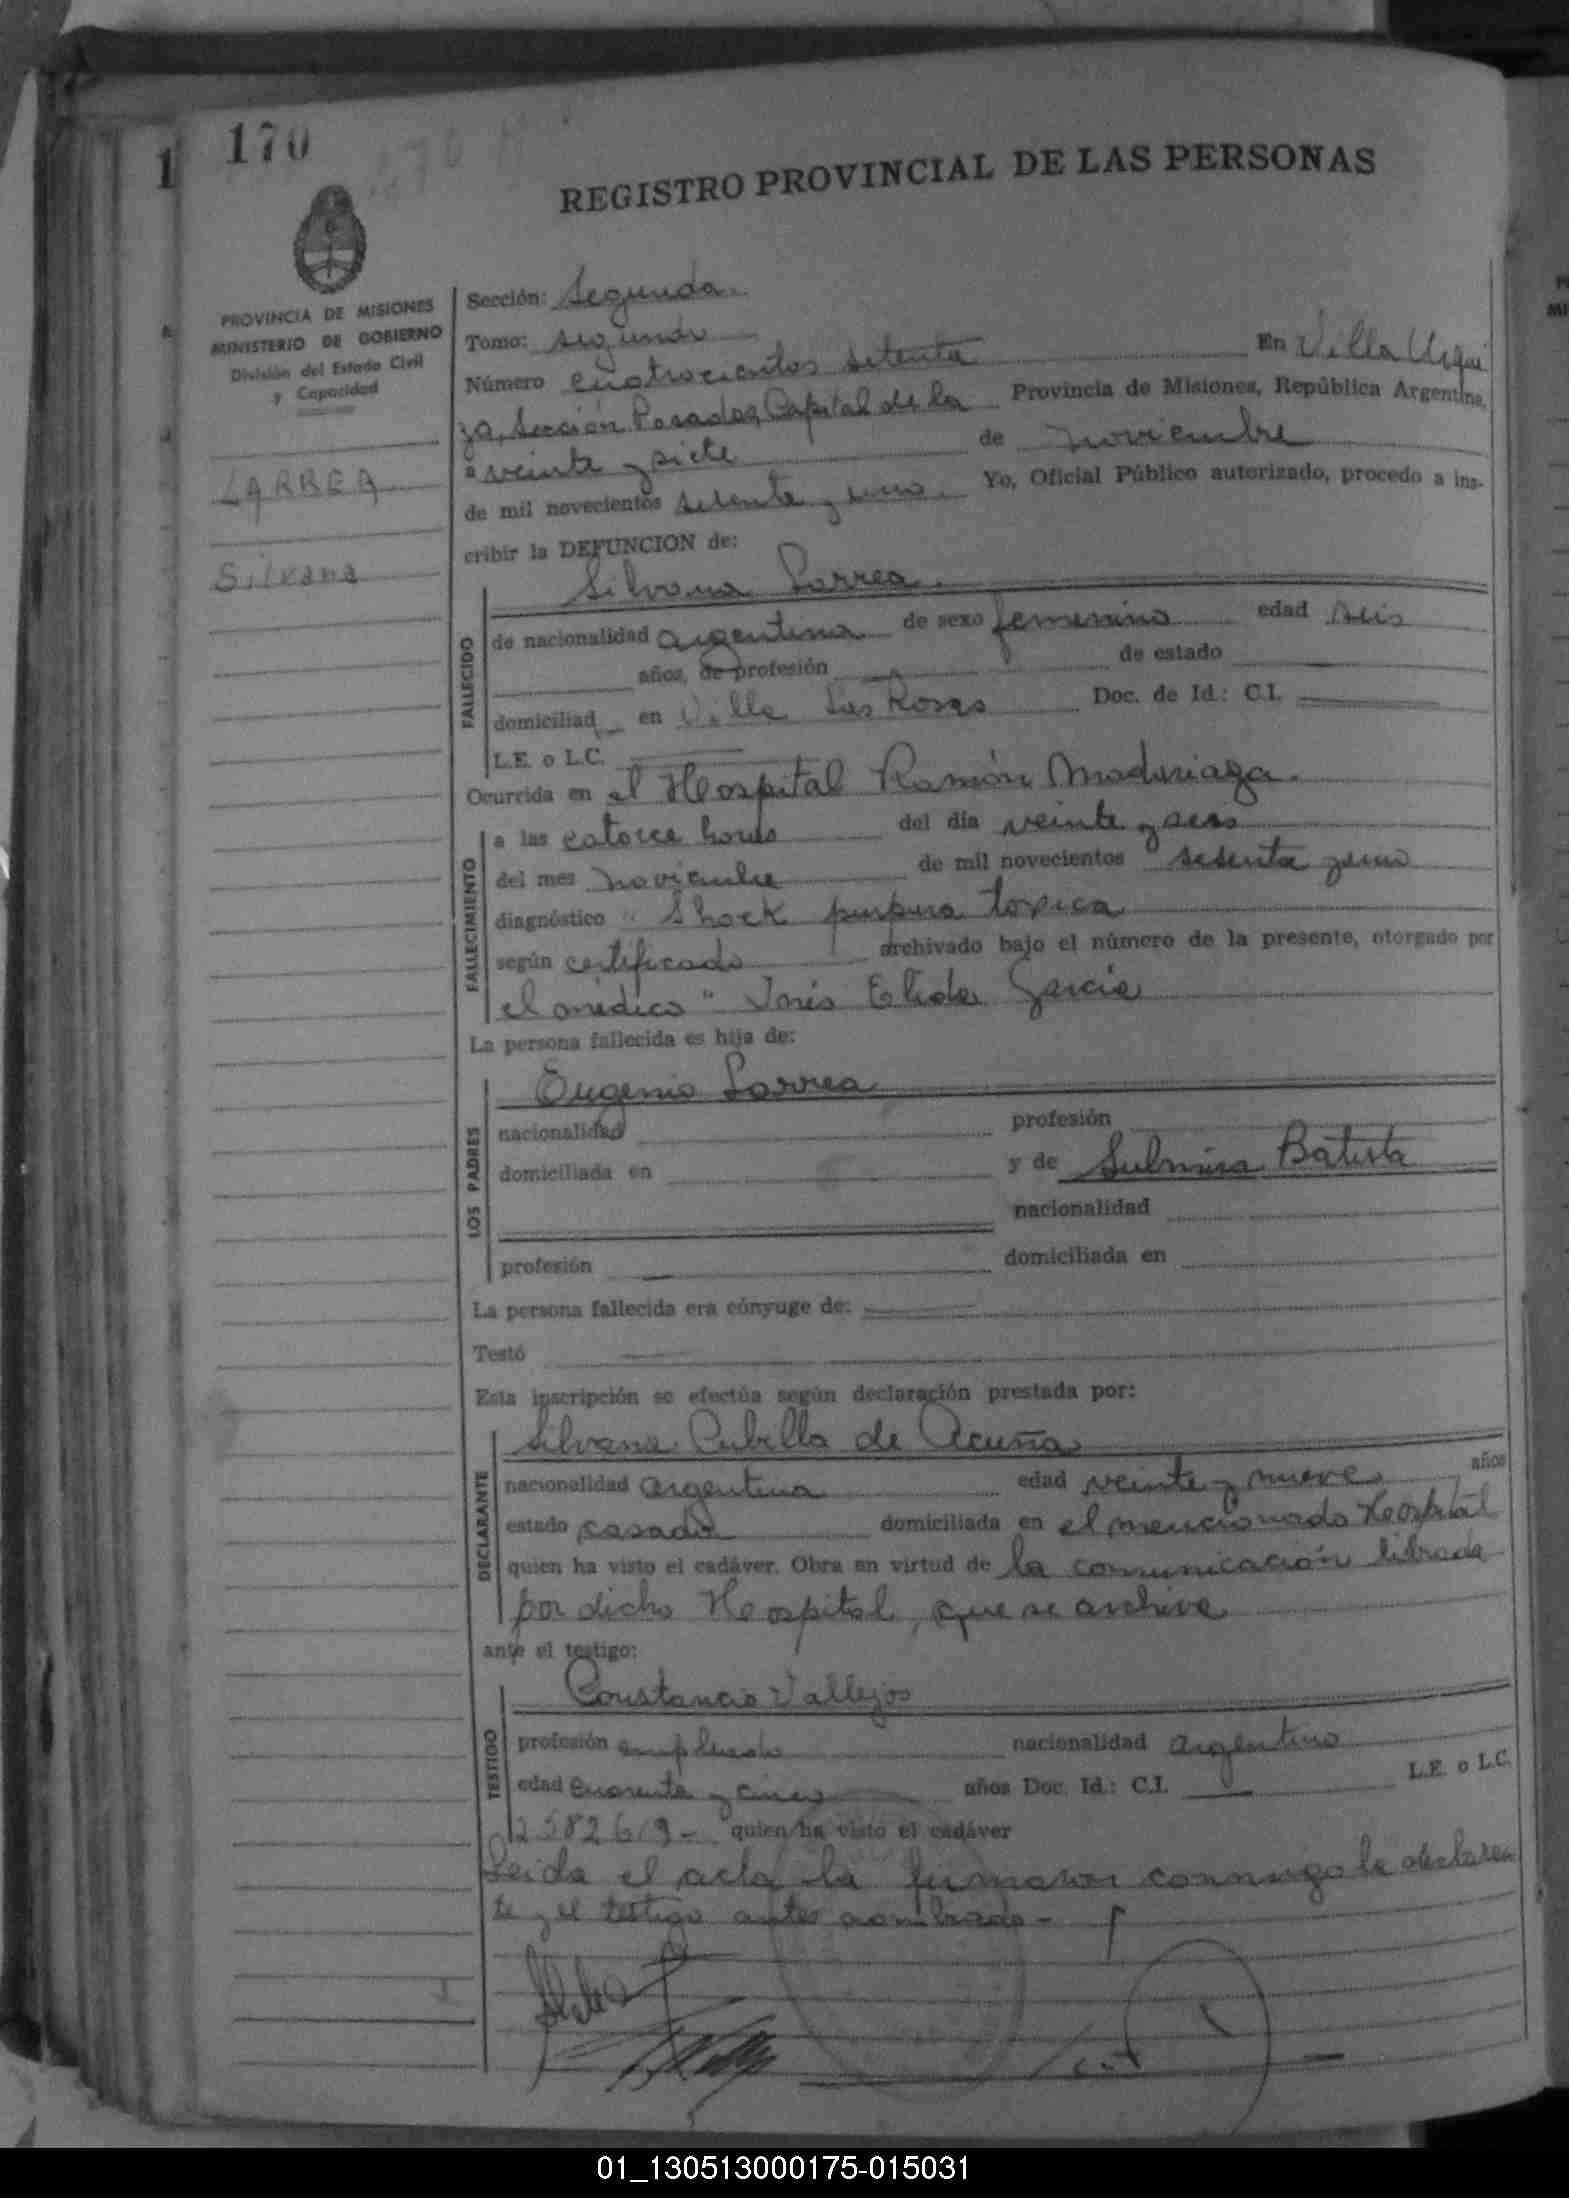 170
REGISTRO PROVINCIAL DE LAS PERSONAS
PROVINCIA DE MISIONES
MINISTERIO DE GOBIERNO
División del Estado Civil
y Capacidad
LARREA
Silvana
Sección: Segunda.
Tomo: segundo
Número cuatrocientos setenta En Villa Urqui
za, Sección Posadas, Capital de la Provincia de Misiones, República Argentina,
a veinte y siete de noviembre
de mil novecientos setenta y uno. Yo, Oficial Público autorizado, procedo a ins-
cribir la DEFUNCION de:
Silvana Larrea.
FALLECIDO
de nacionalidad argentina de sexo femenino edad seis
años, de profesión de estado
domiciliad en Villa Las Rosas Doc. de Id.: C.I.
L.E. o L.C.
Ocurrida en el Hospital Ramón Madariaga.
FALLECIMIENTO
a las catorce horas del día veinte y seis
del mes noviembre de mil novecientos setenta y uno
diagnóstico " Shock purpura toxica
según certificado archivado bajo el número de la presente, otorgado por
el médico " Inés Elida García
La persona fallecida es hija de:
Eugenio Larrea
LOS PADRES
nacionalidad profesión
domiciliada en y de Sulmira Batista
nacionalidad
profesión domiciliada en
La persona fallecida era cónyuge de:
Testó
Esta inscripción se efectúa según declaración prestada por:
Silvana Cubilla de Acuña
DECLARANTE
nacionalidad argentina edad veinte y nueve años
estado casada domiciliada en el mencionado Hospital
quien ha visto el cadáver. Obra en virtud de la comunicación librada
por dicho Hospital, que se archiva
ante el testigo:
Constancio Vallejos
TESTIGO
profesión empleado nacionalidad argentino
edad cuarenta y cinco años Doc. Id.: C.I. L.E. o L.C.
2582619- quien ha visto el cadáver
Leida el acta la firmaron conmigo la declaran
te y el testigo antes nombrado -
01_130513000175-015031